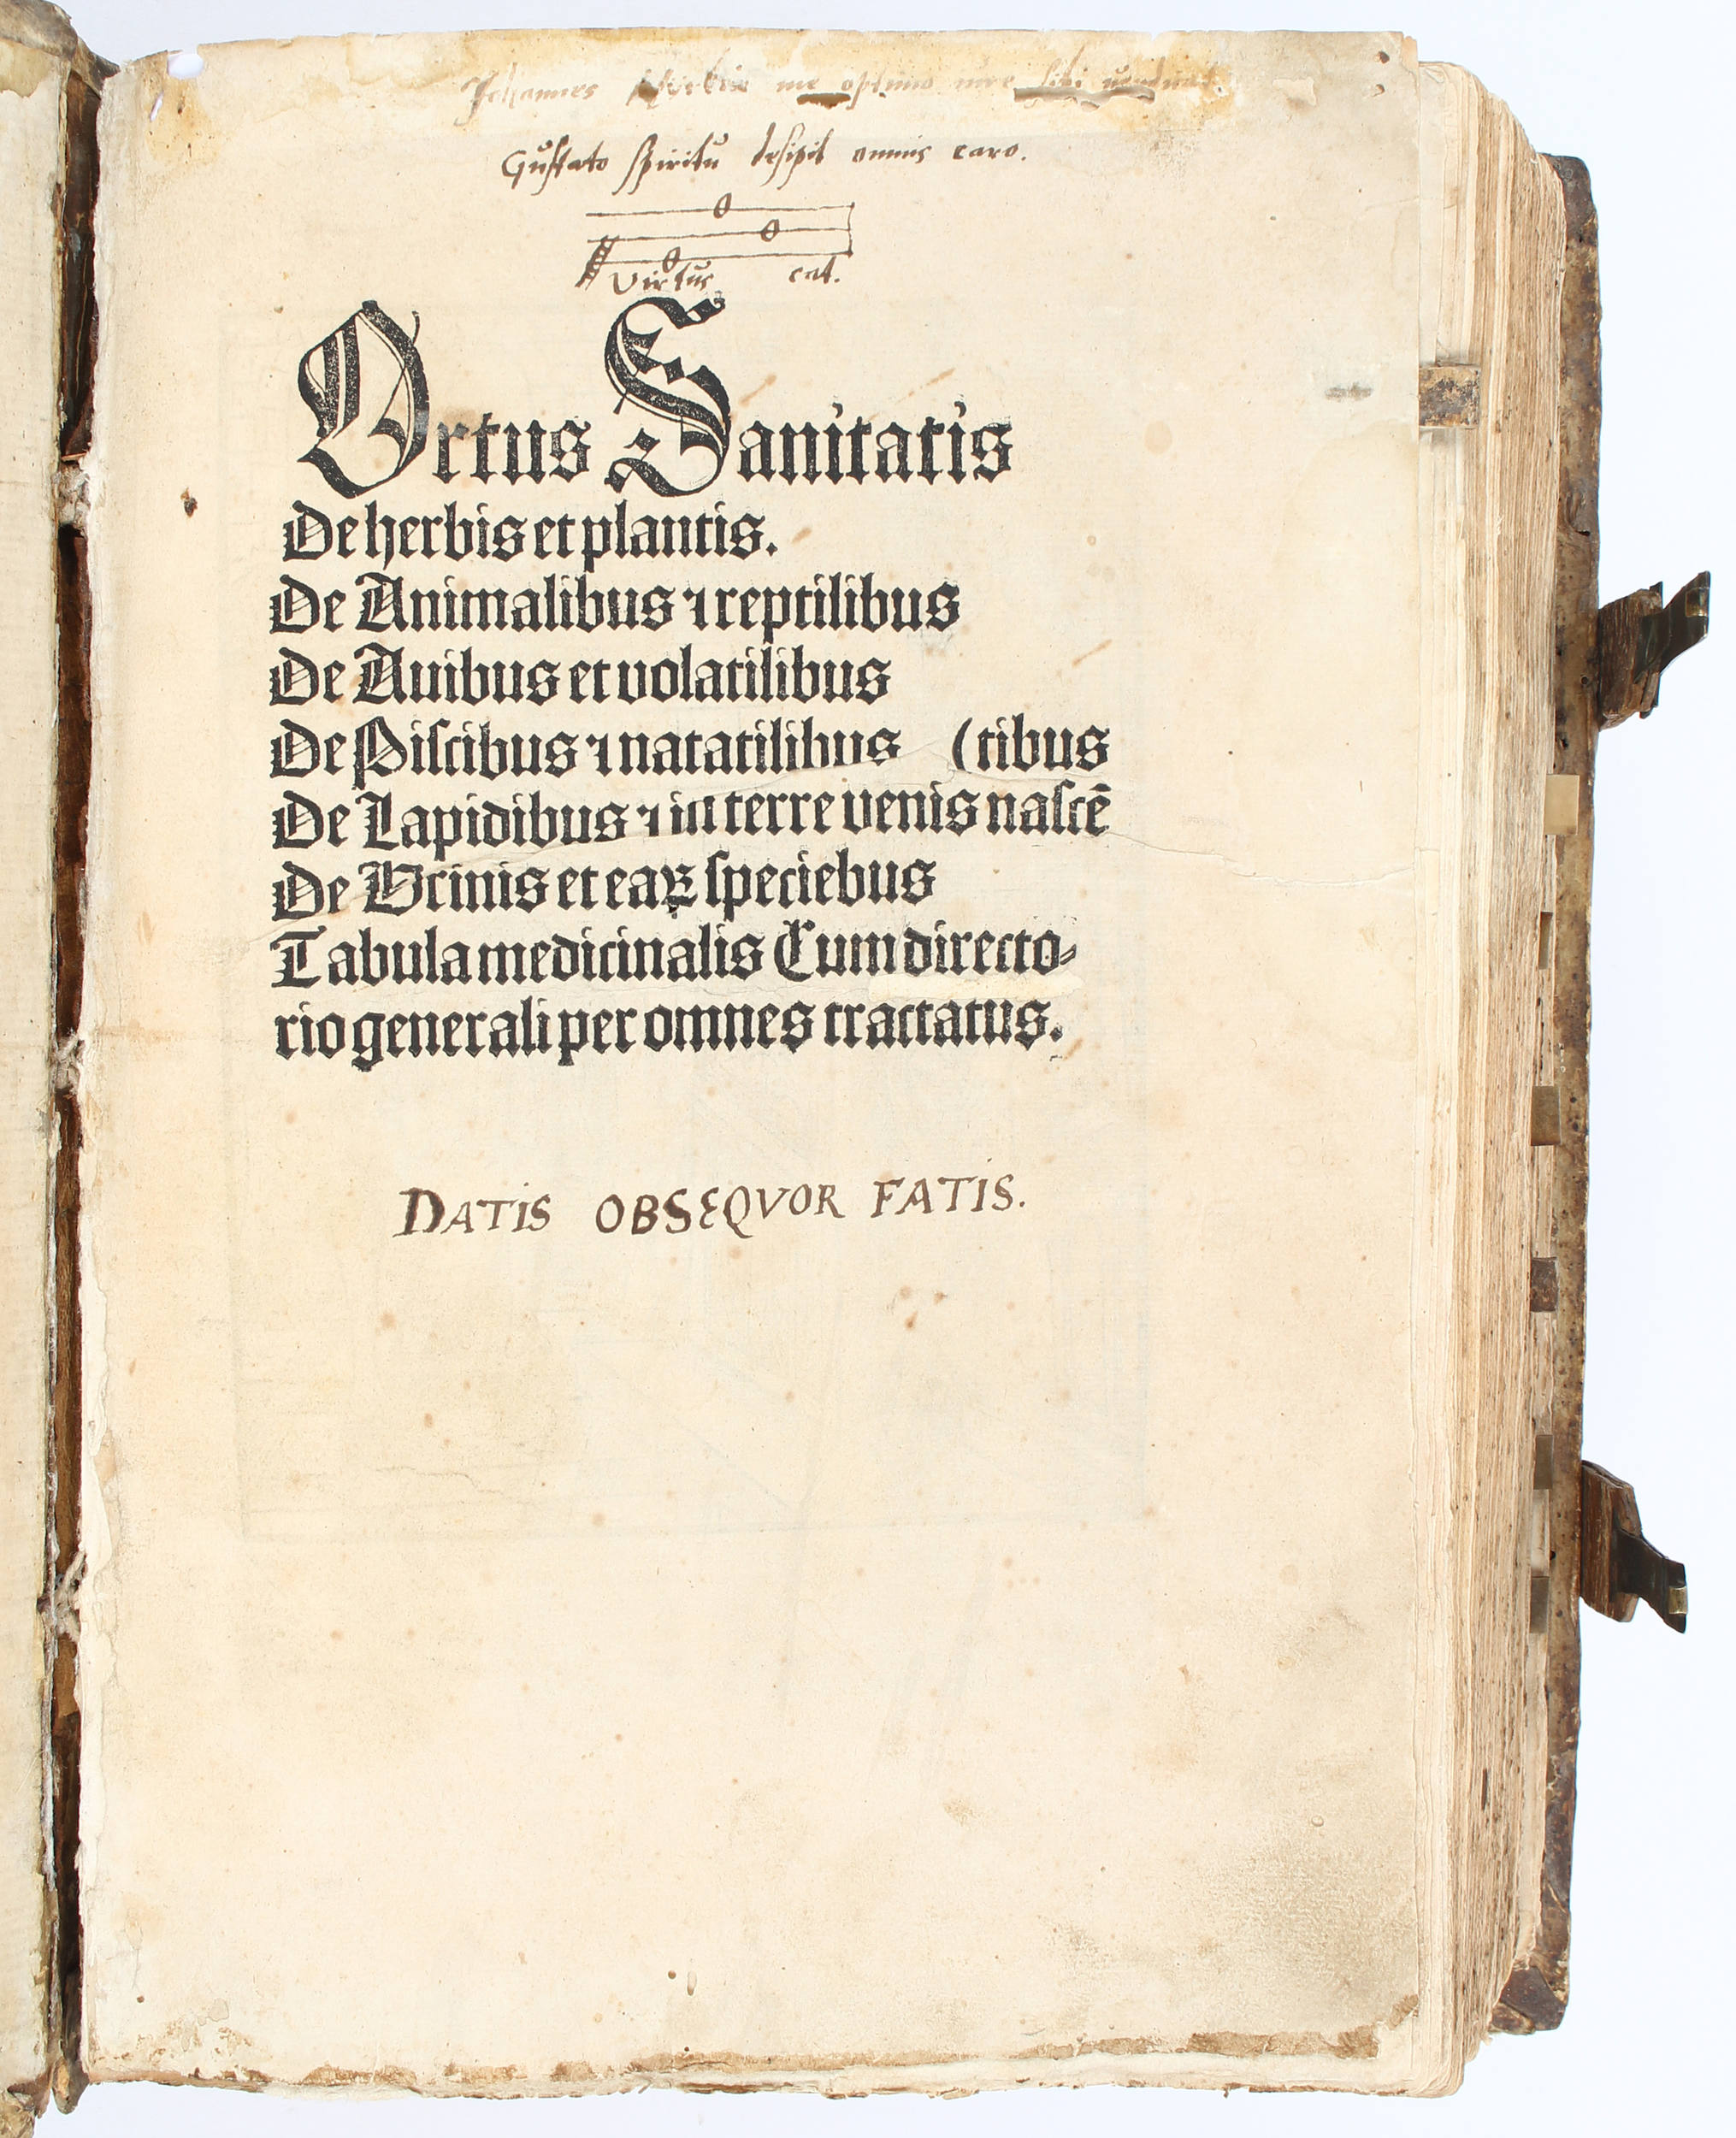 Johannes me optimo iure sibi
Gustato spiritu desipit omnis caro.
Virtus cat.
Ortus Sanitatis
De herbis et plantis.
De Animalibus ⁊ reptilibus
De Auibus et volatilibus
De Piſcibus ⁊ natatilibus (tibus
De Lapidibus ⁊ in terre venis naſcē
De Vrinis et eaꝝ ſpeciebus
Tabula medicinalis Cum directo⸗
rio generali per omnes tractatus.
DATIS OBSEQVOR FATIS.